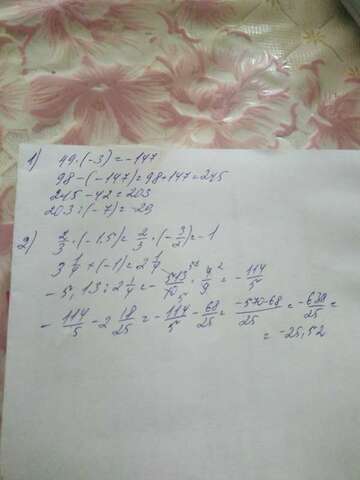 1) 49·(-3)=-147
98-(-147)=98+147=245
245-42=203
203:(-7)=-29
2) 2/3·(-1.5)=2/3·(-3/2)=-1
3 1/4+(-1)=2 1/4
-5,13:2 1/4=-513/10·4/9=-114/5
-114/5-2 18/25=-114/5-68/25=-570-68/25=-638/25=
=-25,52